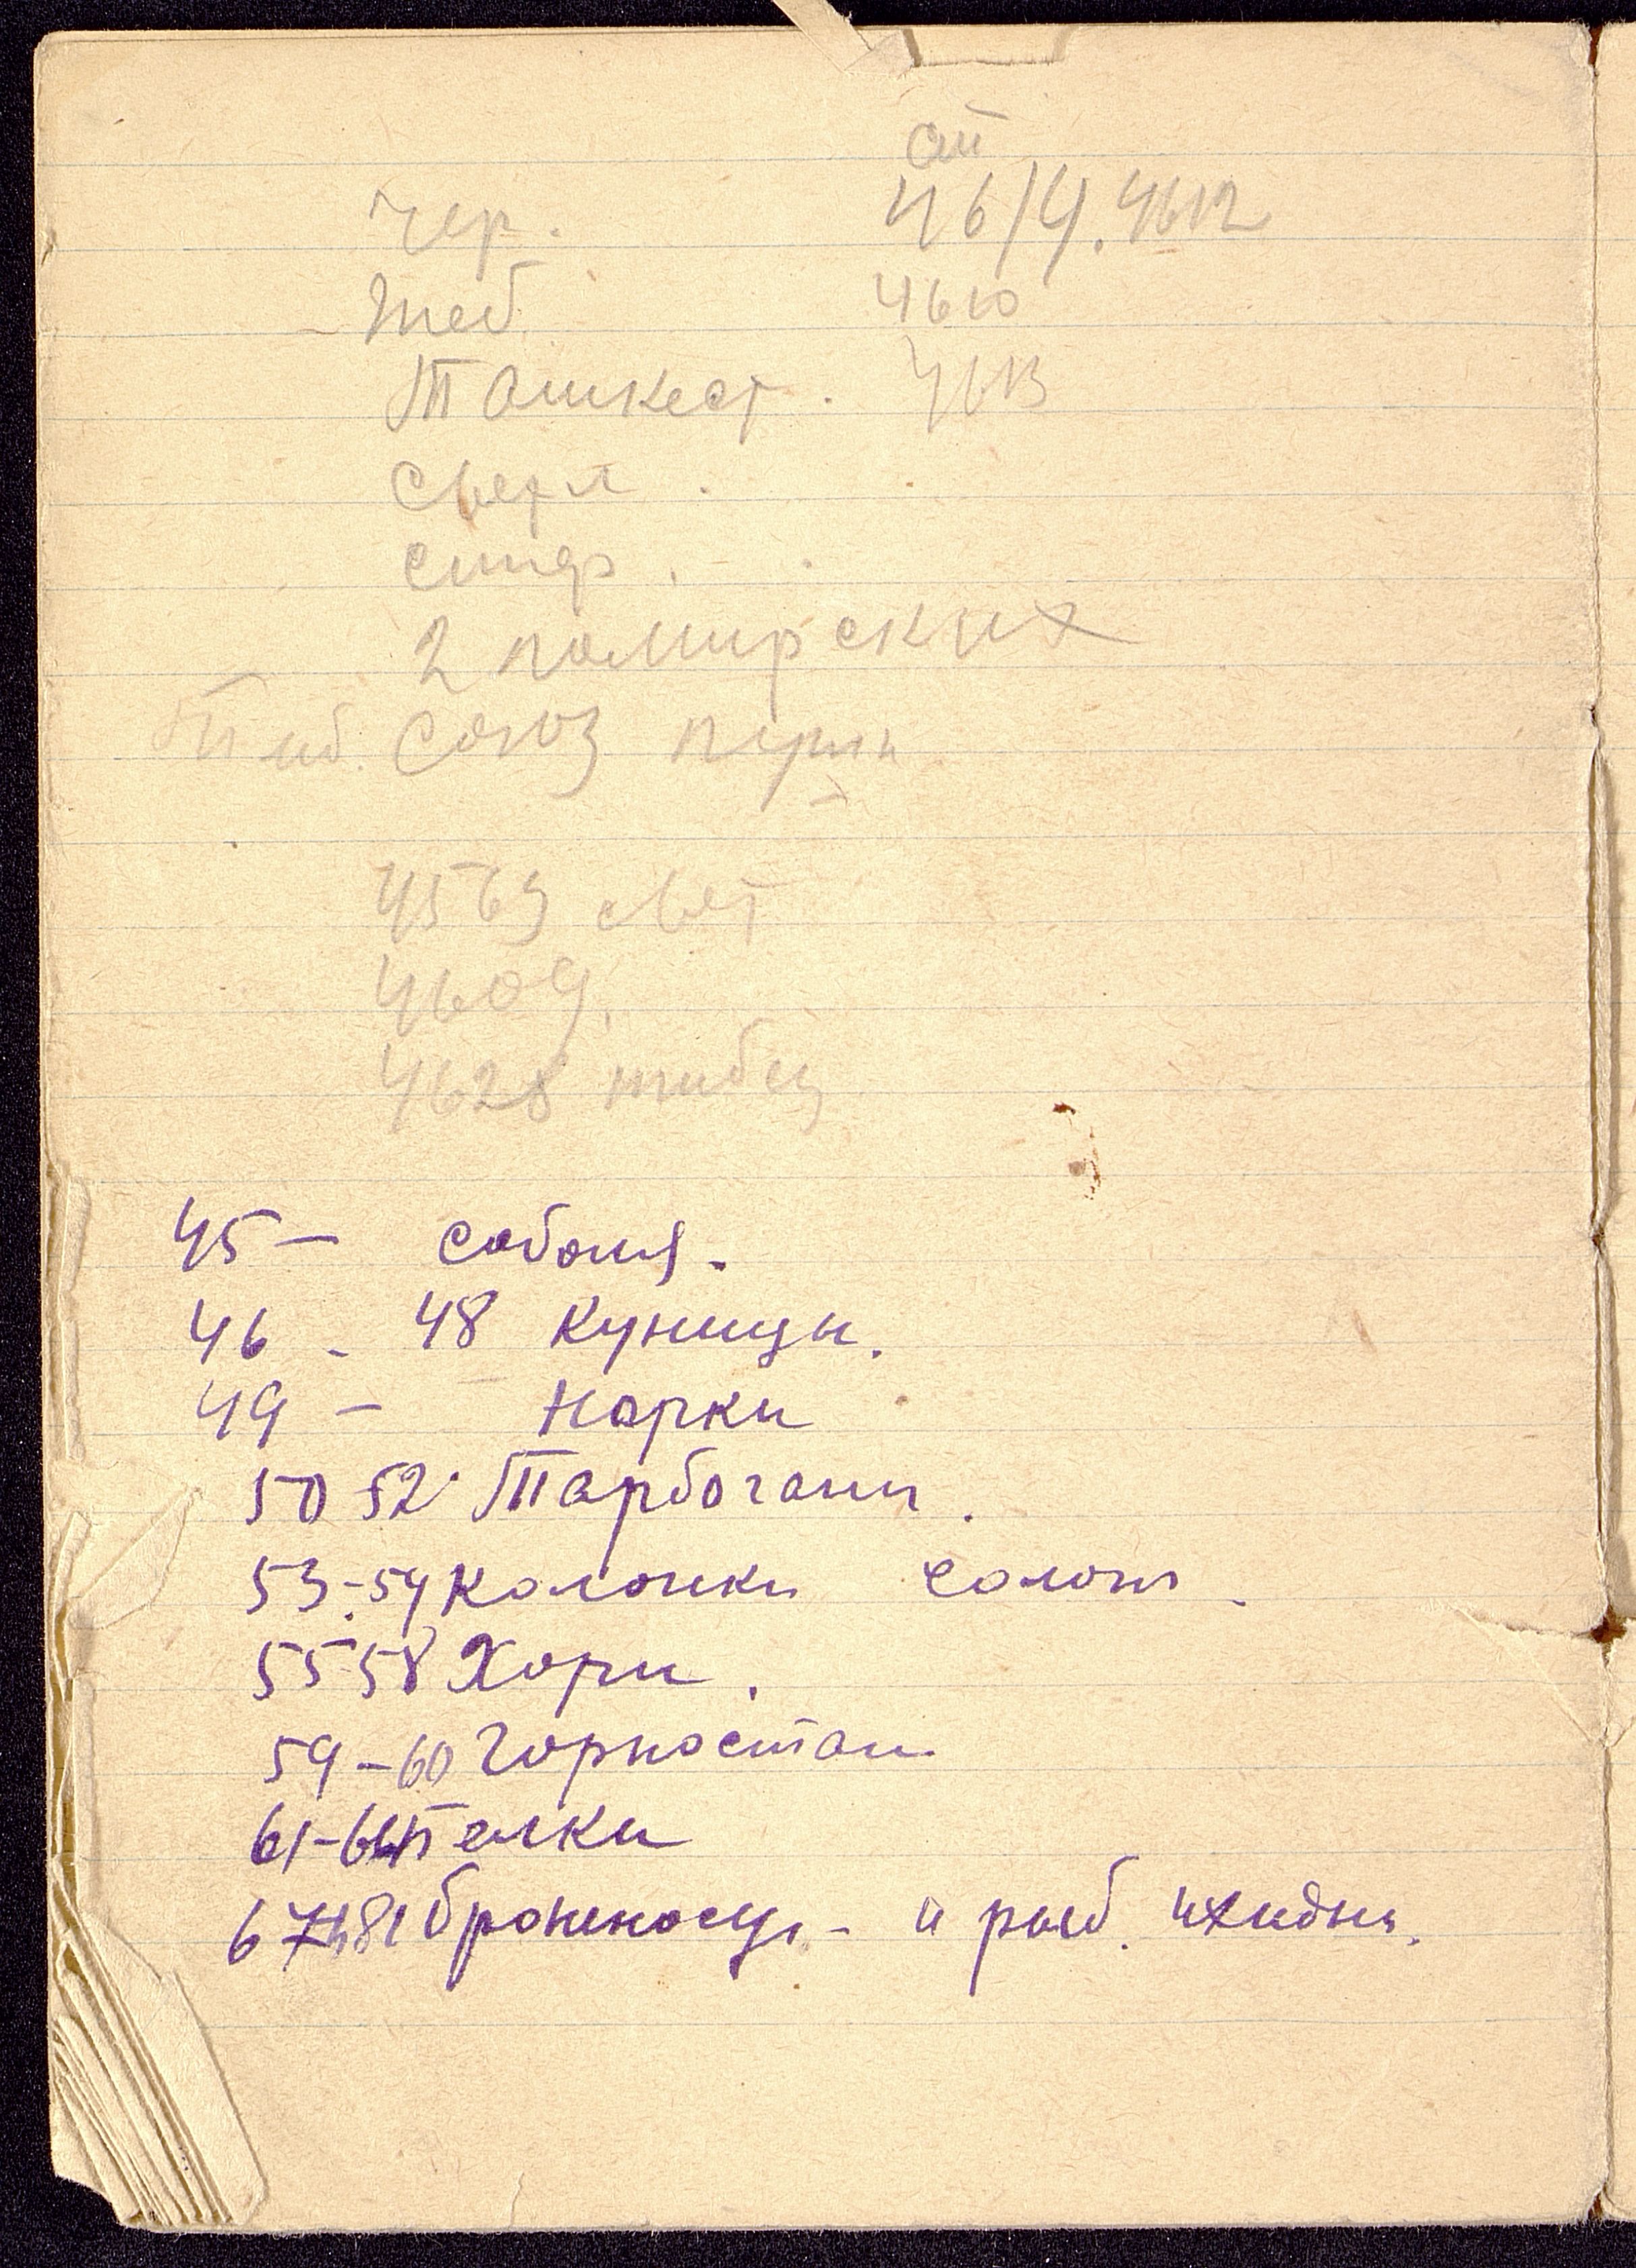 от
чер. 4614. 4612
теб. 4610
Ташкест. 4613
светл.
сингр.
2 памирских
Тиб. Союз
4563 свет
4609.
4628 тибец
45 — соболя.
46 - 48 Куницы.
49 — Норки
50 52 Тарбоганы.
53-54 Колонки солонг.
55-58 Хори.
59-60 Горностаи
61-66 Белки
67 81 броненосцы - и рыб. ихидны.